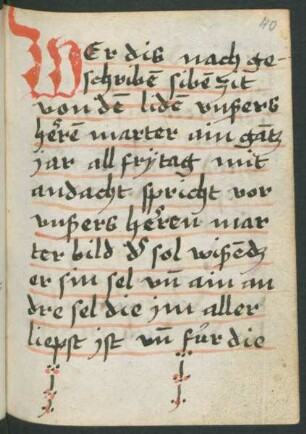 40
WEr dis nach ge-
schribē siben zit
von dē lidē vnßers
heren marter ain gātz
jar all frÿtag mit
andacht spricht vor
vnßers heren mar
ter bild ds sol wißēdz
er sin sel vn̄ ain an
dre sel die jm aller
liepst jst vn̄ für die